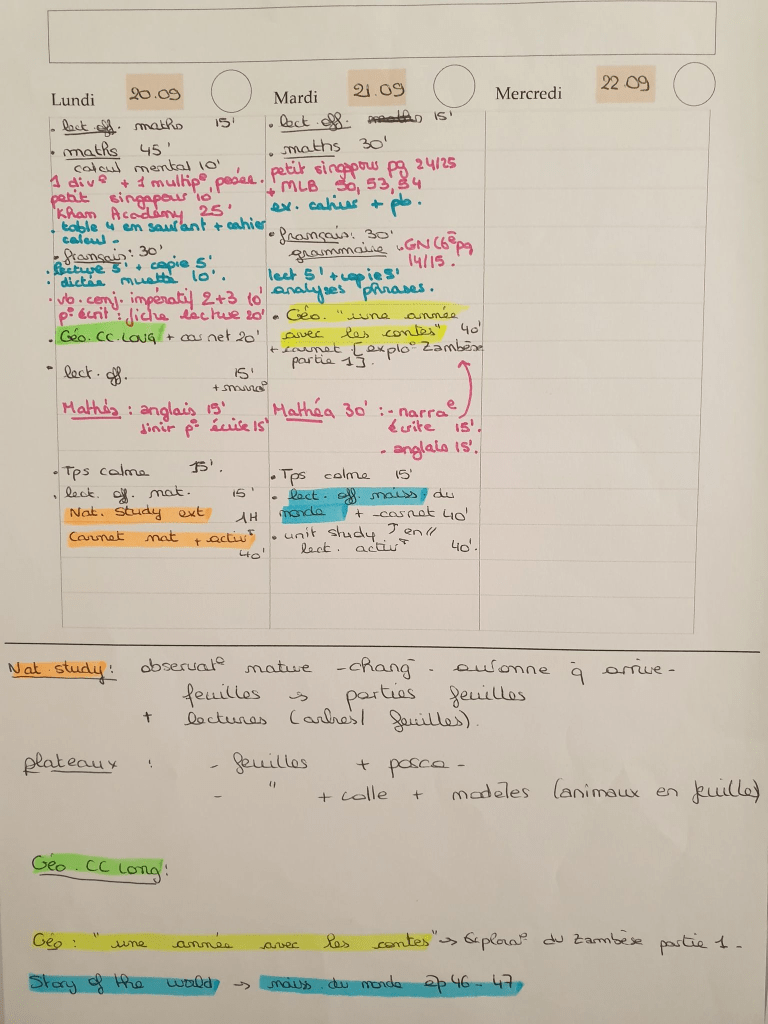 Lundi 20.09
. lect. off. maths 15'
. maths 45'
calcul mental 10'
1 div° + 1 multip° posée.
petit singapour 10'
Kham Academy 25'
. table 4 en sautant + cahier
calcul -
. français : 30'
. lecture 5' + copie 5'
. dictée muette 10'.
. vb. conj. impératif 2+3 10'
p° écrit : fiche lecture 20'
. Géo. CC. Long + carnet 20'
. lect. off. 15'
+ narra°
Mathéa : anglais 15'
finir p° écrite 15'
. Tps calme 15'.
. lect. off. nat. 15'
Nat. study ext 1H
Carnet nat + activ^t
40'
Mardi 21.09
. lect. off. maths 15'
. maths 30'
petit singapour pg 24/25
+ MLB 50, 53, 54
ex. cahier + pb.
. français : 30'
grammaire . GN (6è pg
14/15.
lect 5' + copie 5'
analyses phrases.
. Géo. "une année
avec les contes" 40'
+ carnet [explo° Zambèse
partie 1].
Mathéa 30' : - narra°
écrite 15'.
- anglais 15'.
. Tps calme 15'
. lect. off. naiss du
monde + carnet 40'
. unit study en //
lect. activ^t 40'.
Mercredi 22.09
Nat. study : observat° nature - chang^t - automne q arrive -
feuilles → parties feuilles
+ lectures (arbres / feuilles).
plateaux : - feuilles + posca -
- " + colle + modèles (animaux en feuille)
Géo. CC Long :
Géo : "une année avec les contes" → Explorat° du Zambèse partie 1 -
Story of the world → naiss. du monde ep 46 - 47